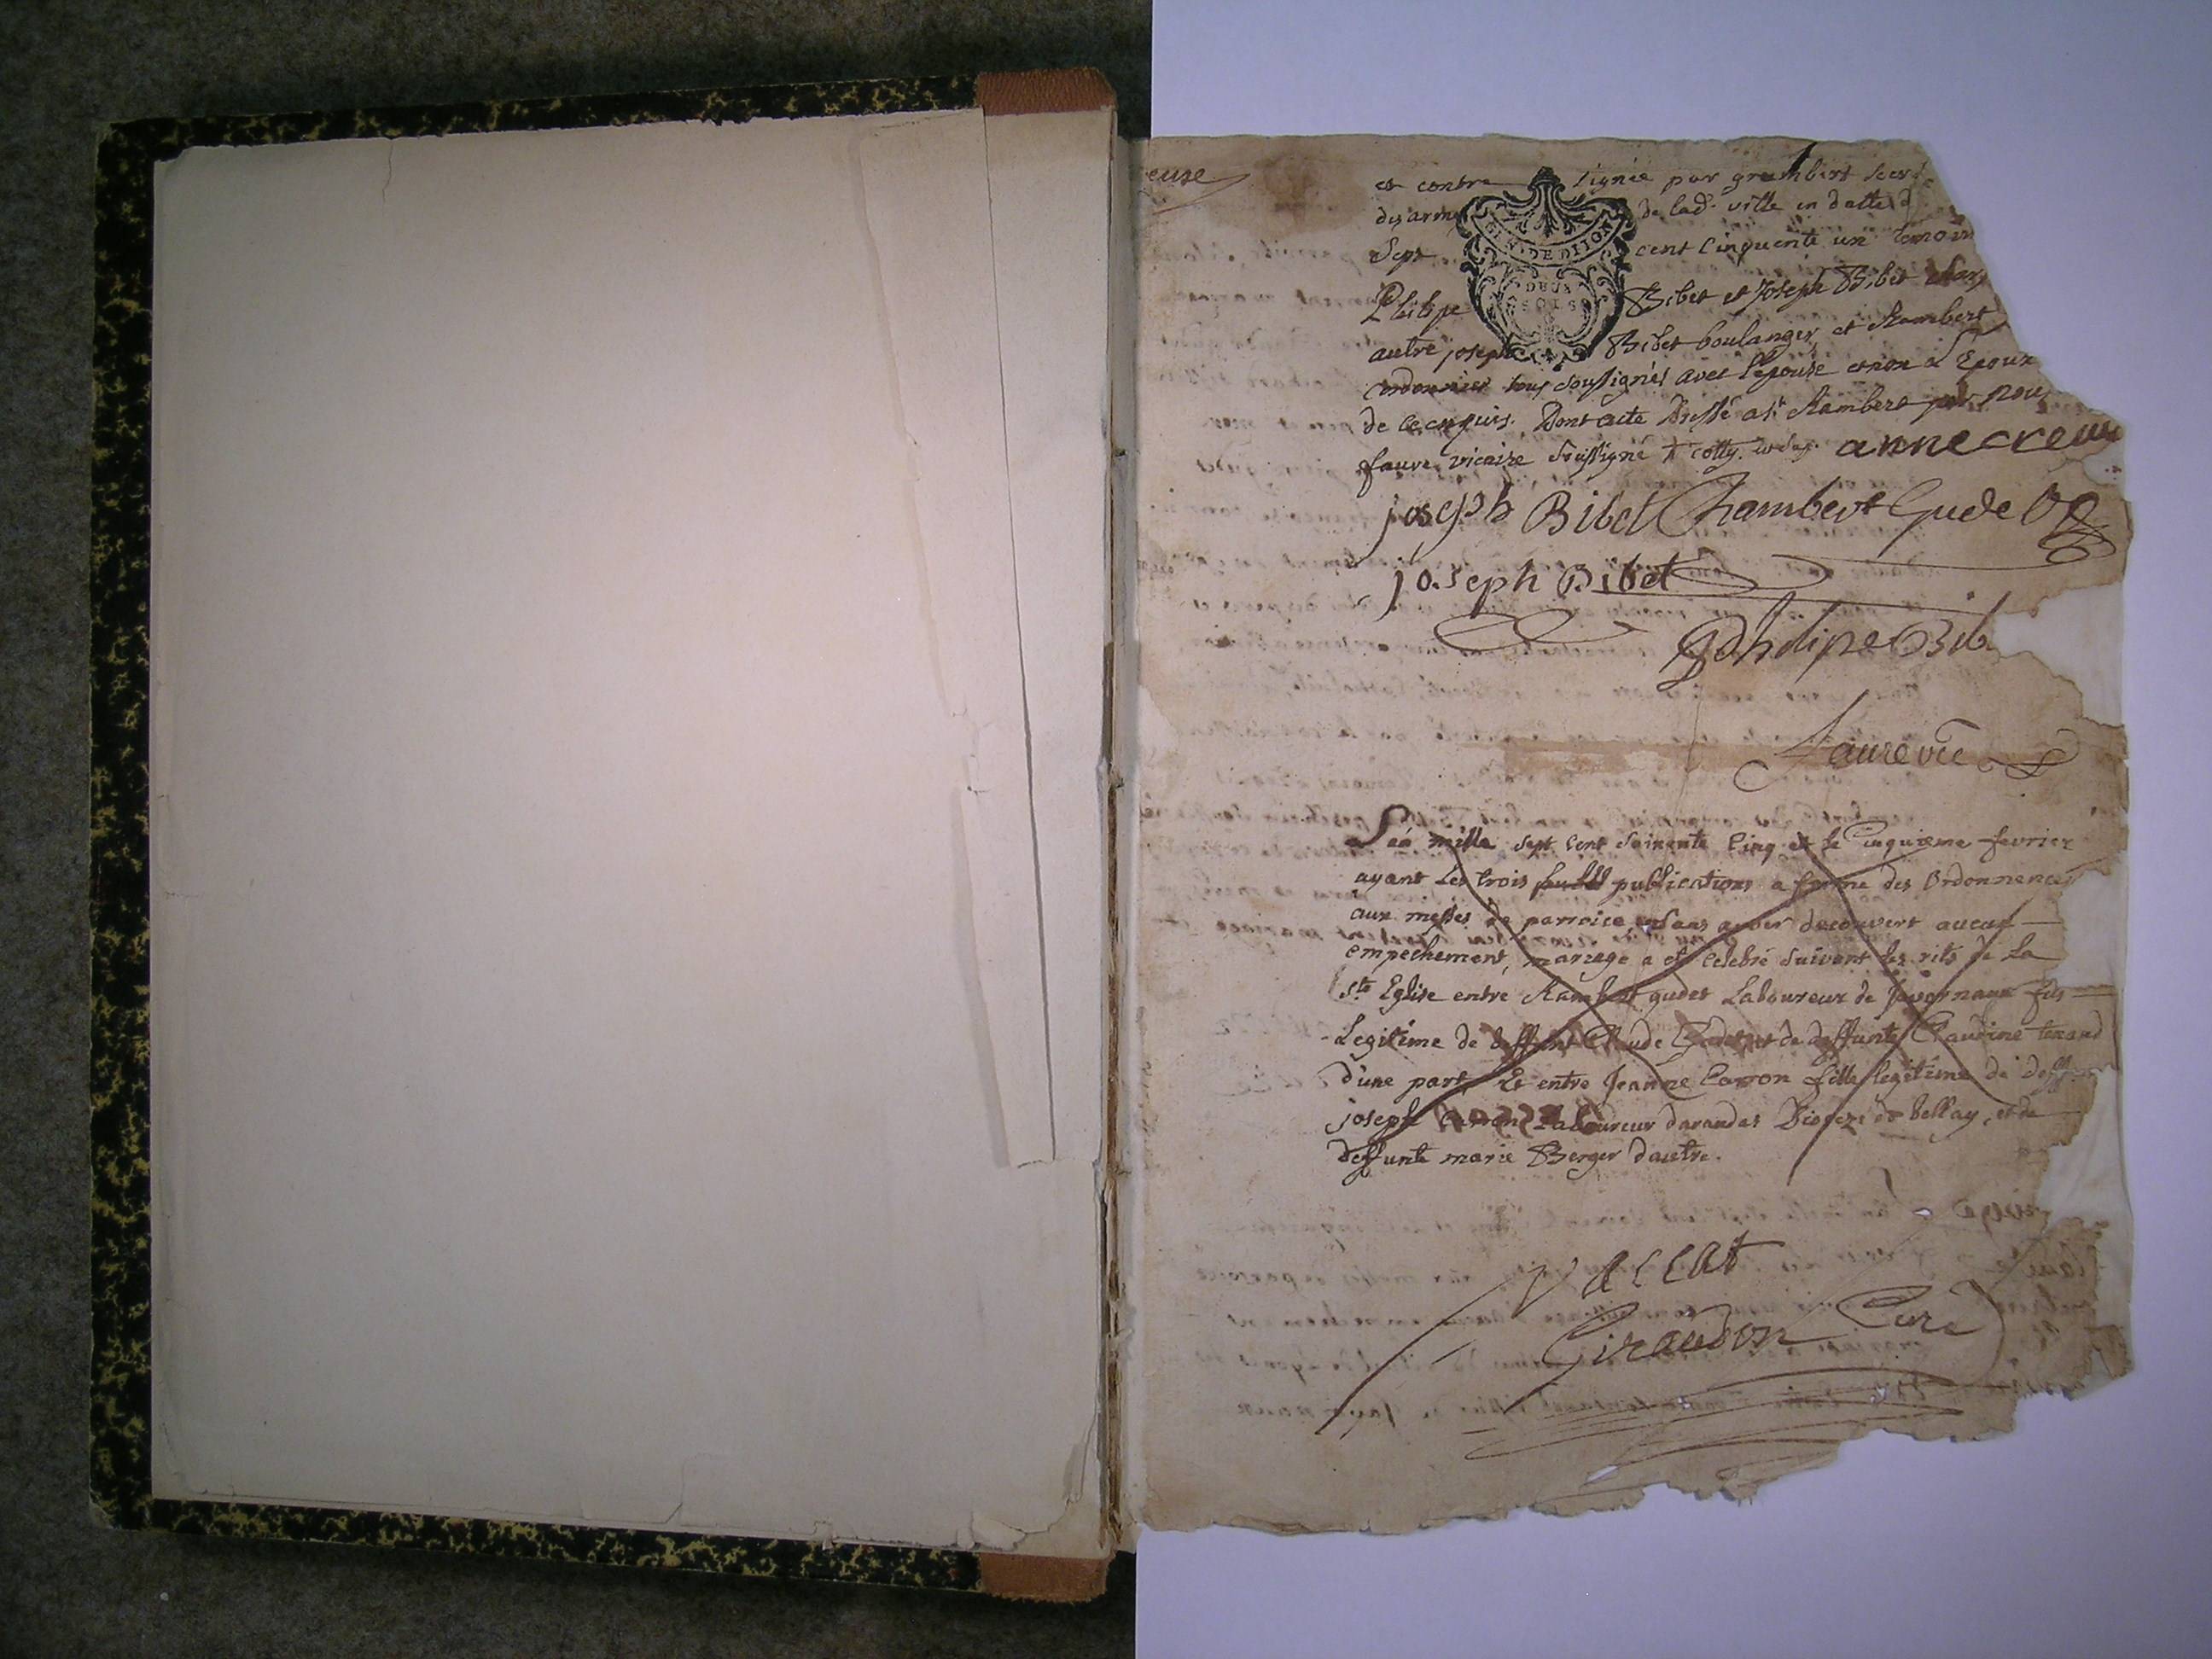 euse
et contre signée par grambert secr
des arme de lad. ville en datte d
Sept cent cinquente un temoin
GEN. DE DIJON
DEUX
SOLS
Philipe Bibet et Joseph Bibet char
autre joseph Bibet boulanger, et Rambert
cordonnier tous soussignés avec l'épouse et non l'Epoux
de ce enquis. Dont acte Dressé a St. Rambert par nous
faure vicaire soussigné anne creuse
joseph Bibet Rambert Gudet
joseph Bibet
Philipe Bib
faure vic
L'an mille sept cent soixante cinq et le cinquieme fevrier
ayant les trois publications a forme des Ordonnences
aux messes de parroice sans avoir decouvert aucun
empechement, mariage a été celebré suivant les rits de La
Ste Eglise entre Rambert gudet Laboureur de Javornaux fils
Legitime de deffunt Claude Gudet et de deffunte Claudine tenand
d'une part, Et entre Jeanne Carron fille legitime de deffunt
joseph Carron Laboureur darandas Dioceze de bellay, et de
deffunte marie Berger dautre.
vaccat
Giraudon Curé